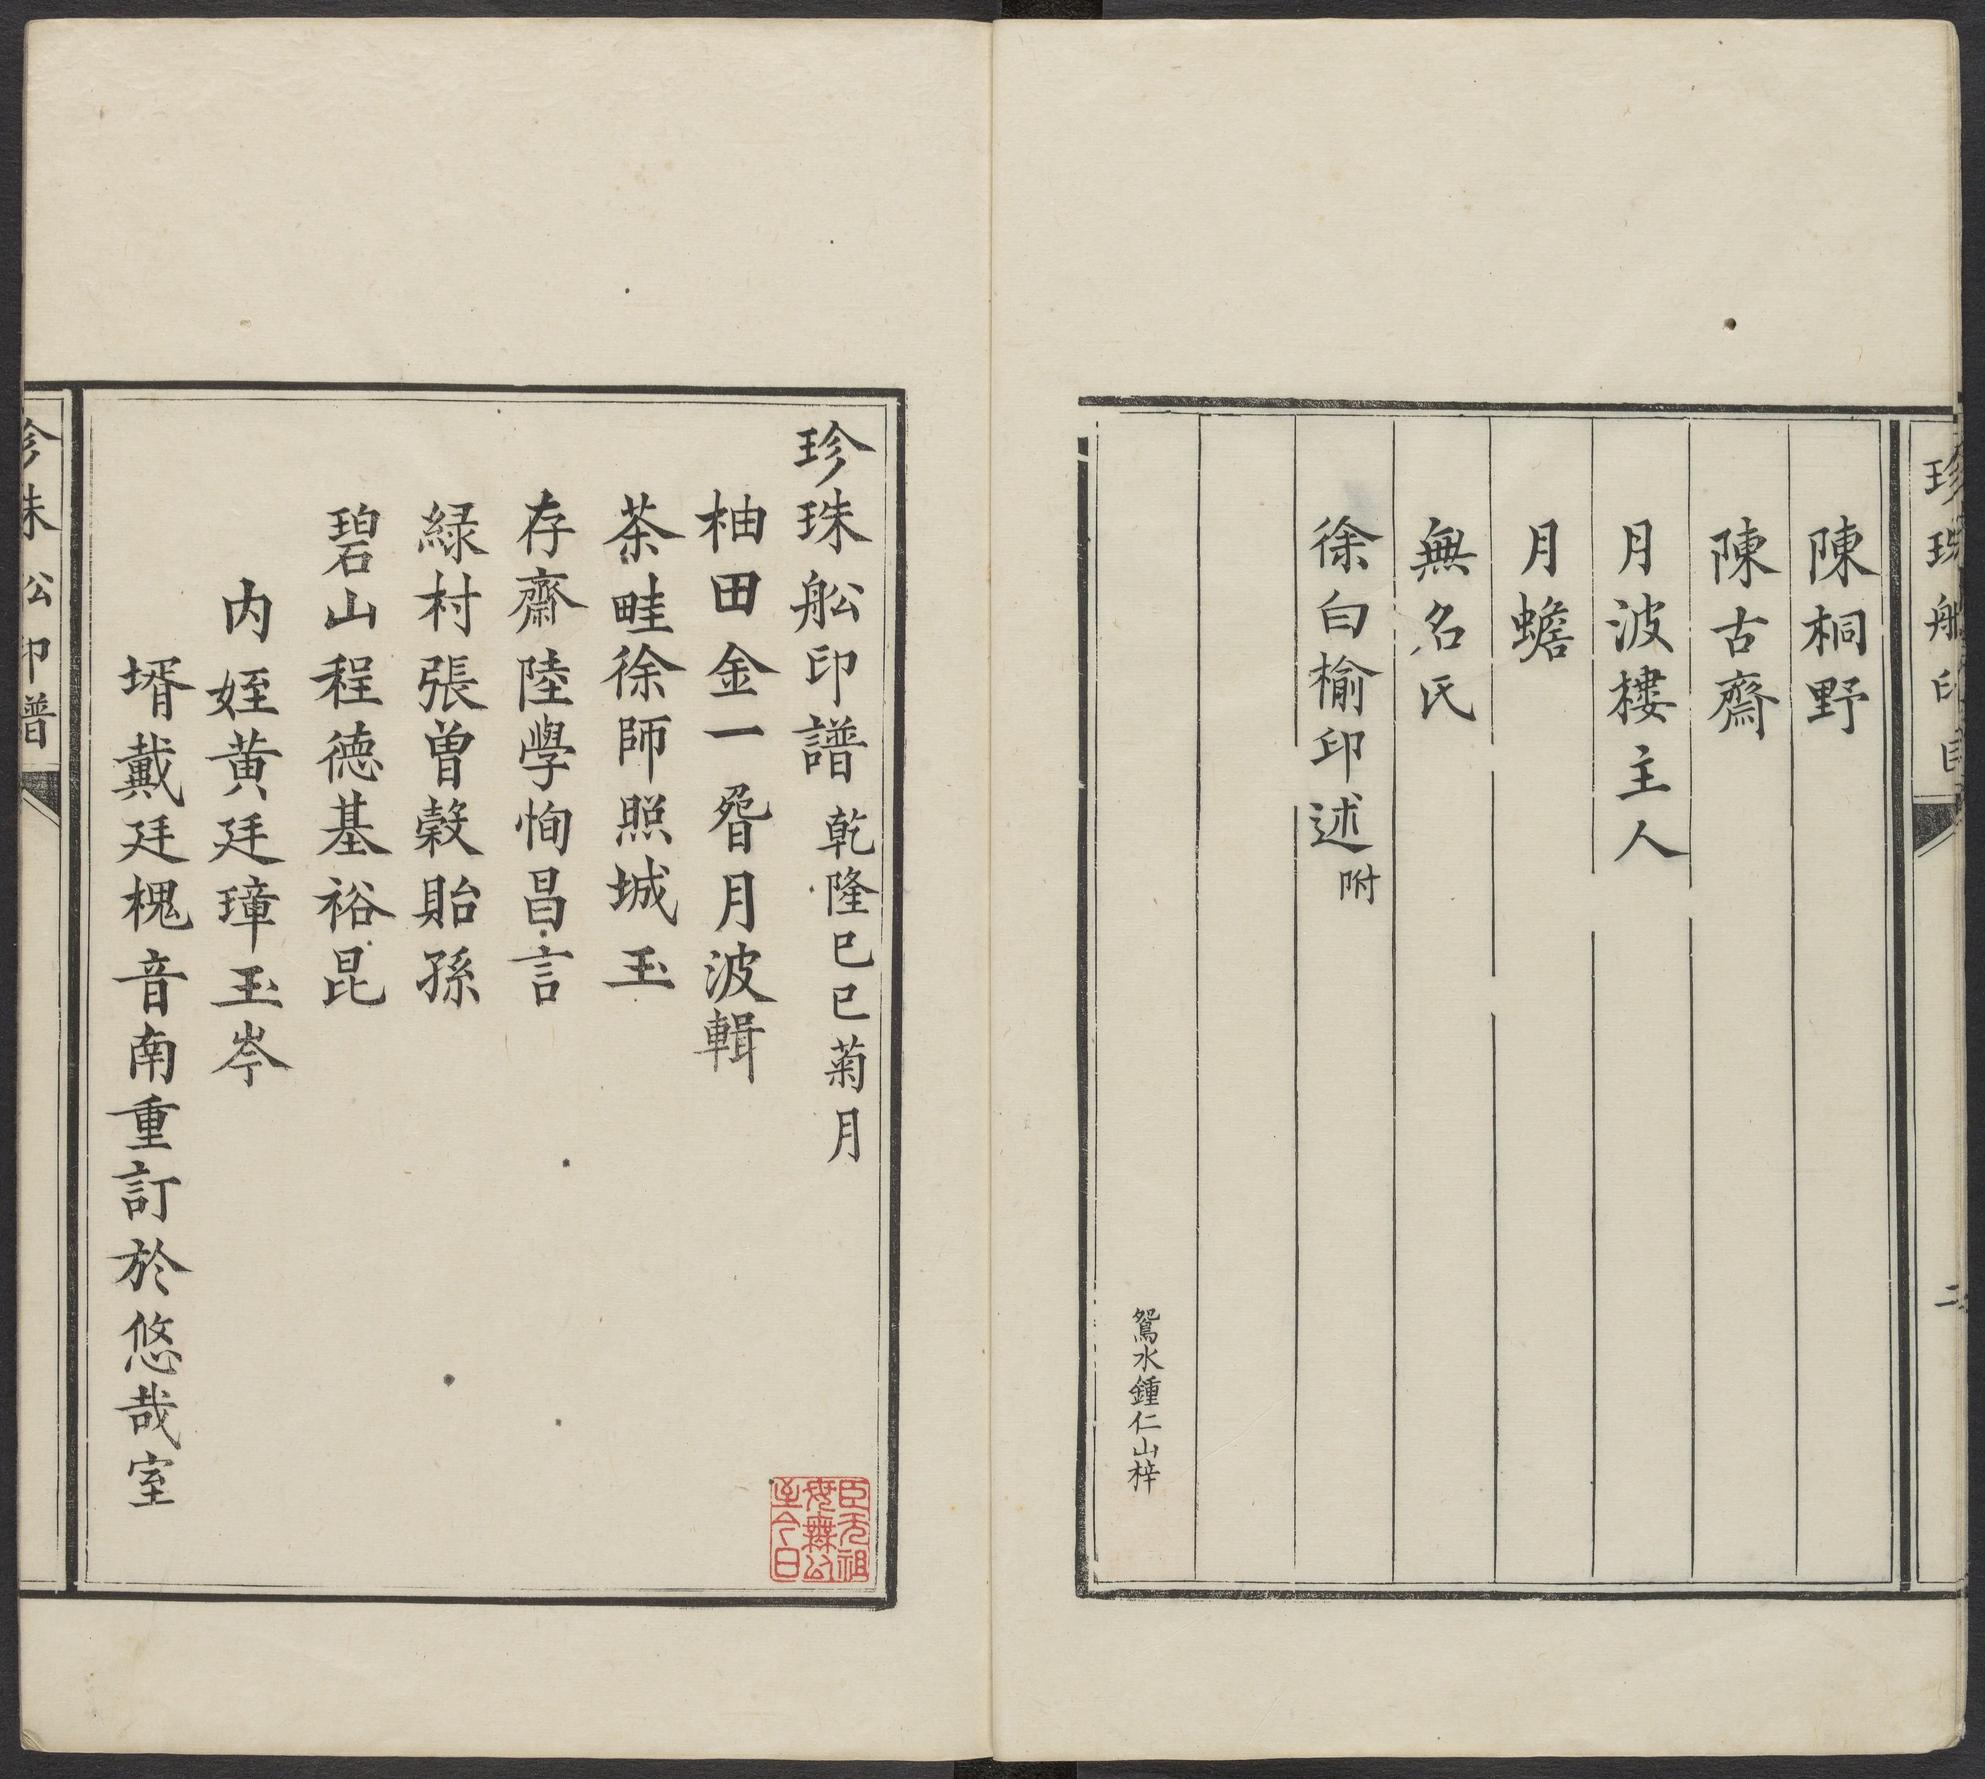 珍珠船印目
二
陳桐野
陳古齋
月波樓主人
月蟾
無名氏
徐白榆印述附
鴛水鍾仁山梓
珍珠舩印譜 乾隆己巳菊月
柚田金一㫬月波輯
茶畦徐師照城玉
存齋陸學恂昌言
緑村張曾穀貽孫
碧山程德基裕昆
内姪黄廷璋玉岑
壻戴廷槐音南重訂於悠哉室
珍珠舩印譜